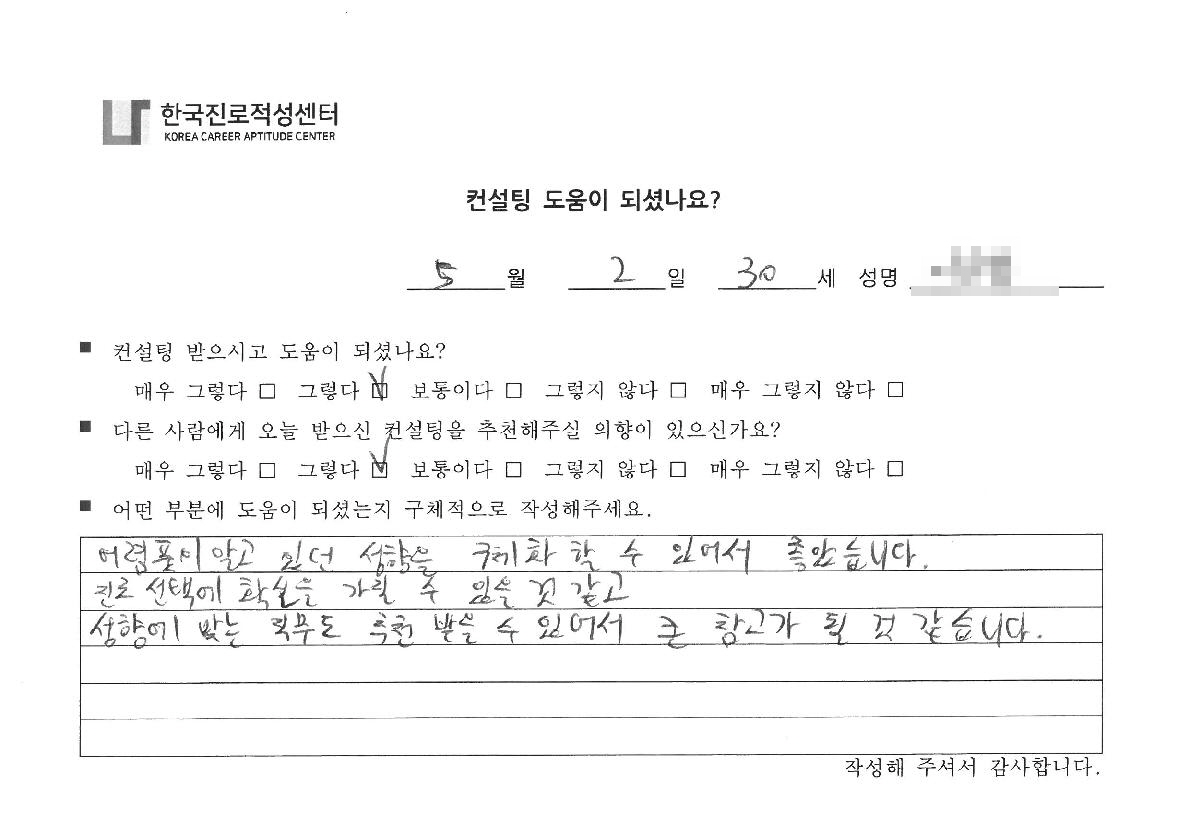 한국진로적성센터
KOREA CAREER APTITUDE CENTER
컨설팅 도움이 되셨나요?
5 월 2 일 30 세 성명
■ 컨설팅 받으시고 도움이 되셨나요?
매우 그렇다 □ 그렇다 ☑ 보통이다 □ 그렇지 않다 □ 매우 그렇지 않다 □
■ 다른 사람에게 오늘 받으신 컨설팅을 추천해주실 의향이 있으신가요?
매우 그렇다 □ 그렇다 ☑ 보통이다 □ 그렇지 않다 □ 매우 그렇지 않다 □
■ 어떤 부분에 도움이 되셨는지 구체적으로 작성해주세요.
어렴풋이 알고 있던 성향을 구체화 할 수 있어서 좋았습니다.
진로 선택에 확신을 가질 수 있을 것 같고
성향에 맞는 직무도 추천 받을 수 있어서 큰 참고가 될 것 같습니다.
작성해 주셔서 감사합니다.